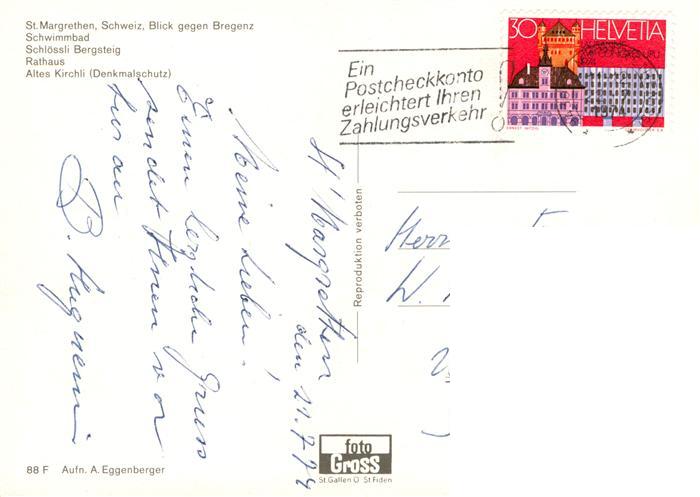 St. Margrethen, Schweiz, Blick gegen Bregenz
Schwimmbad
Schlössli Bergsteig
Rathaus
Altes Kirchli (Denkmalschutz)
Ein
Postcheckkonto
erleichtert Ihren
Zahlungsverkehr
30 HELVETIA
1974
ERNEST WITZIG
St Margrethen
den 21.7.74
Meine Lieben!
Einen herzliche Gruss
sendet Ihnen von
D. Hugueni
Herr
W.
Reproduktion verboten
foto
Gross
St.Gallen O St Fiden
88 F Aufn. A. Eggenberger